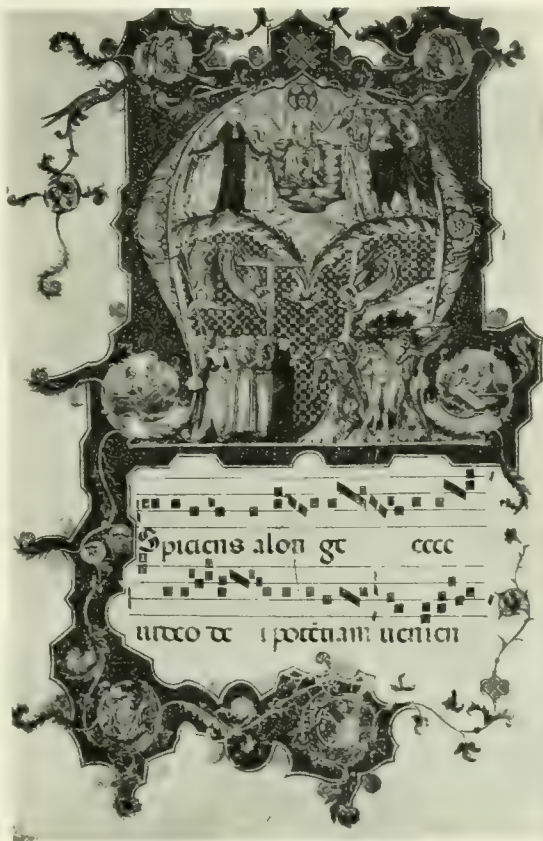 Spiciens alon ge ecce
uideo de i potētiam uenien